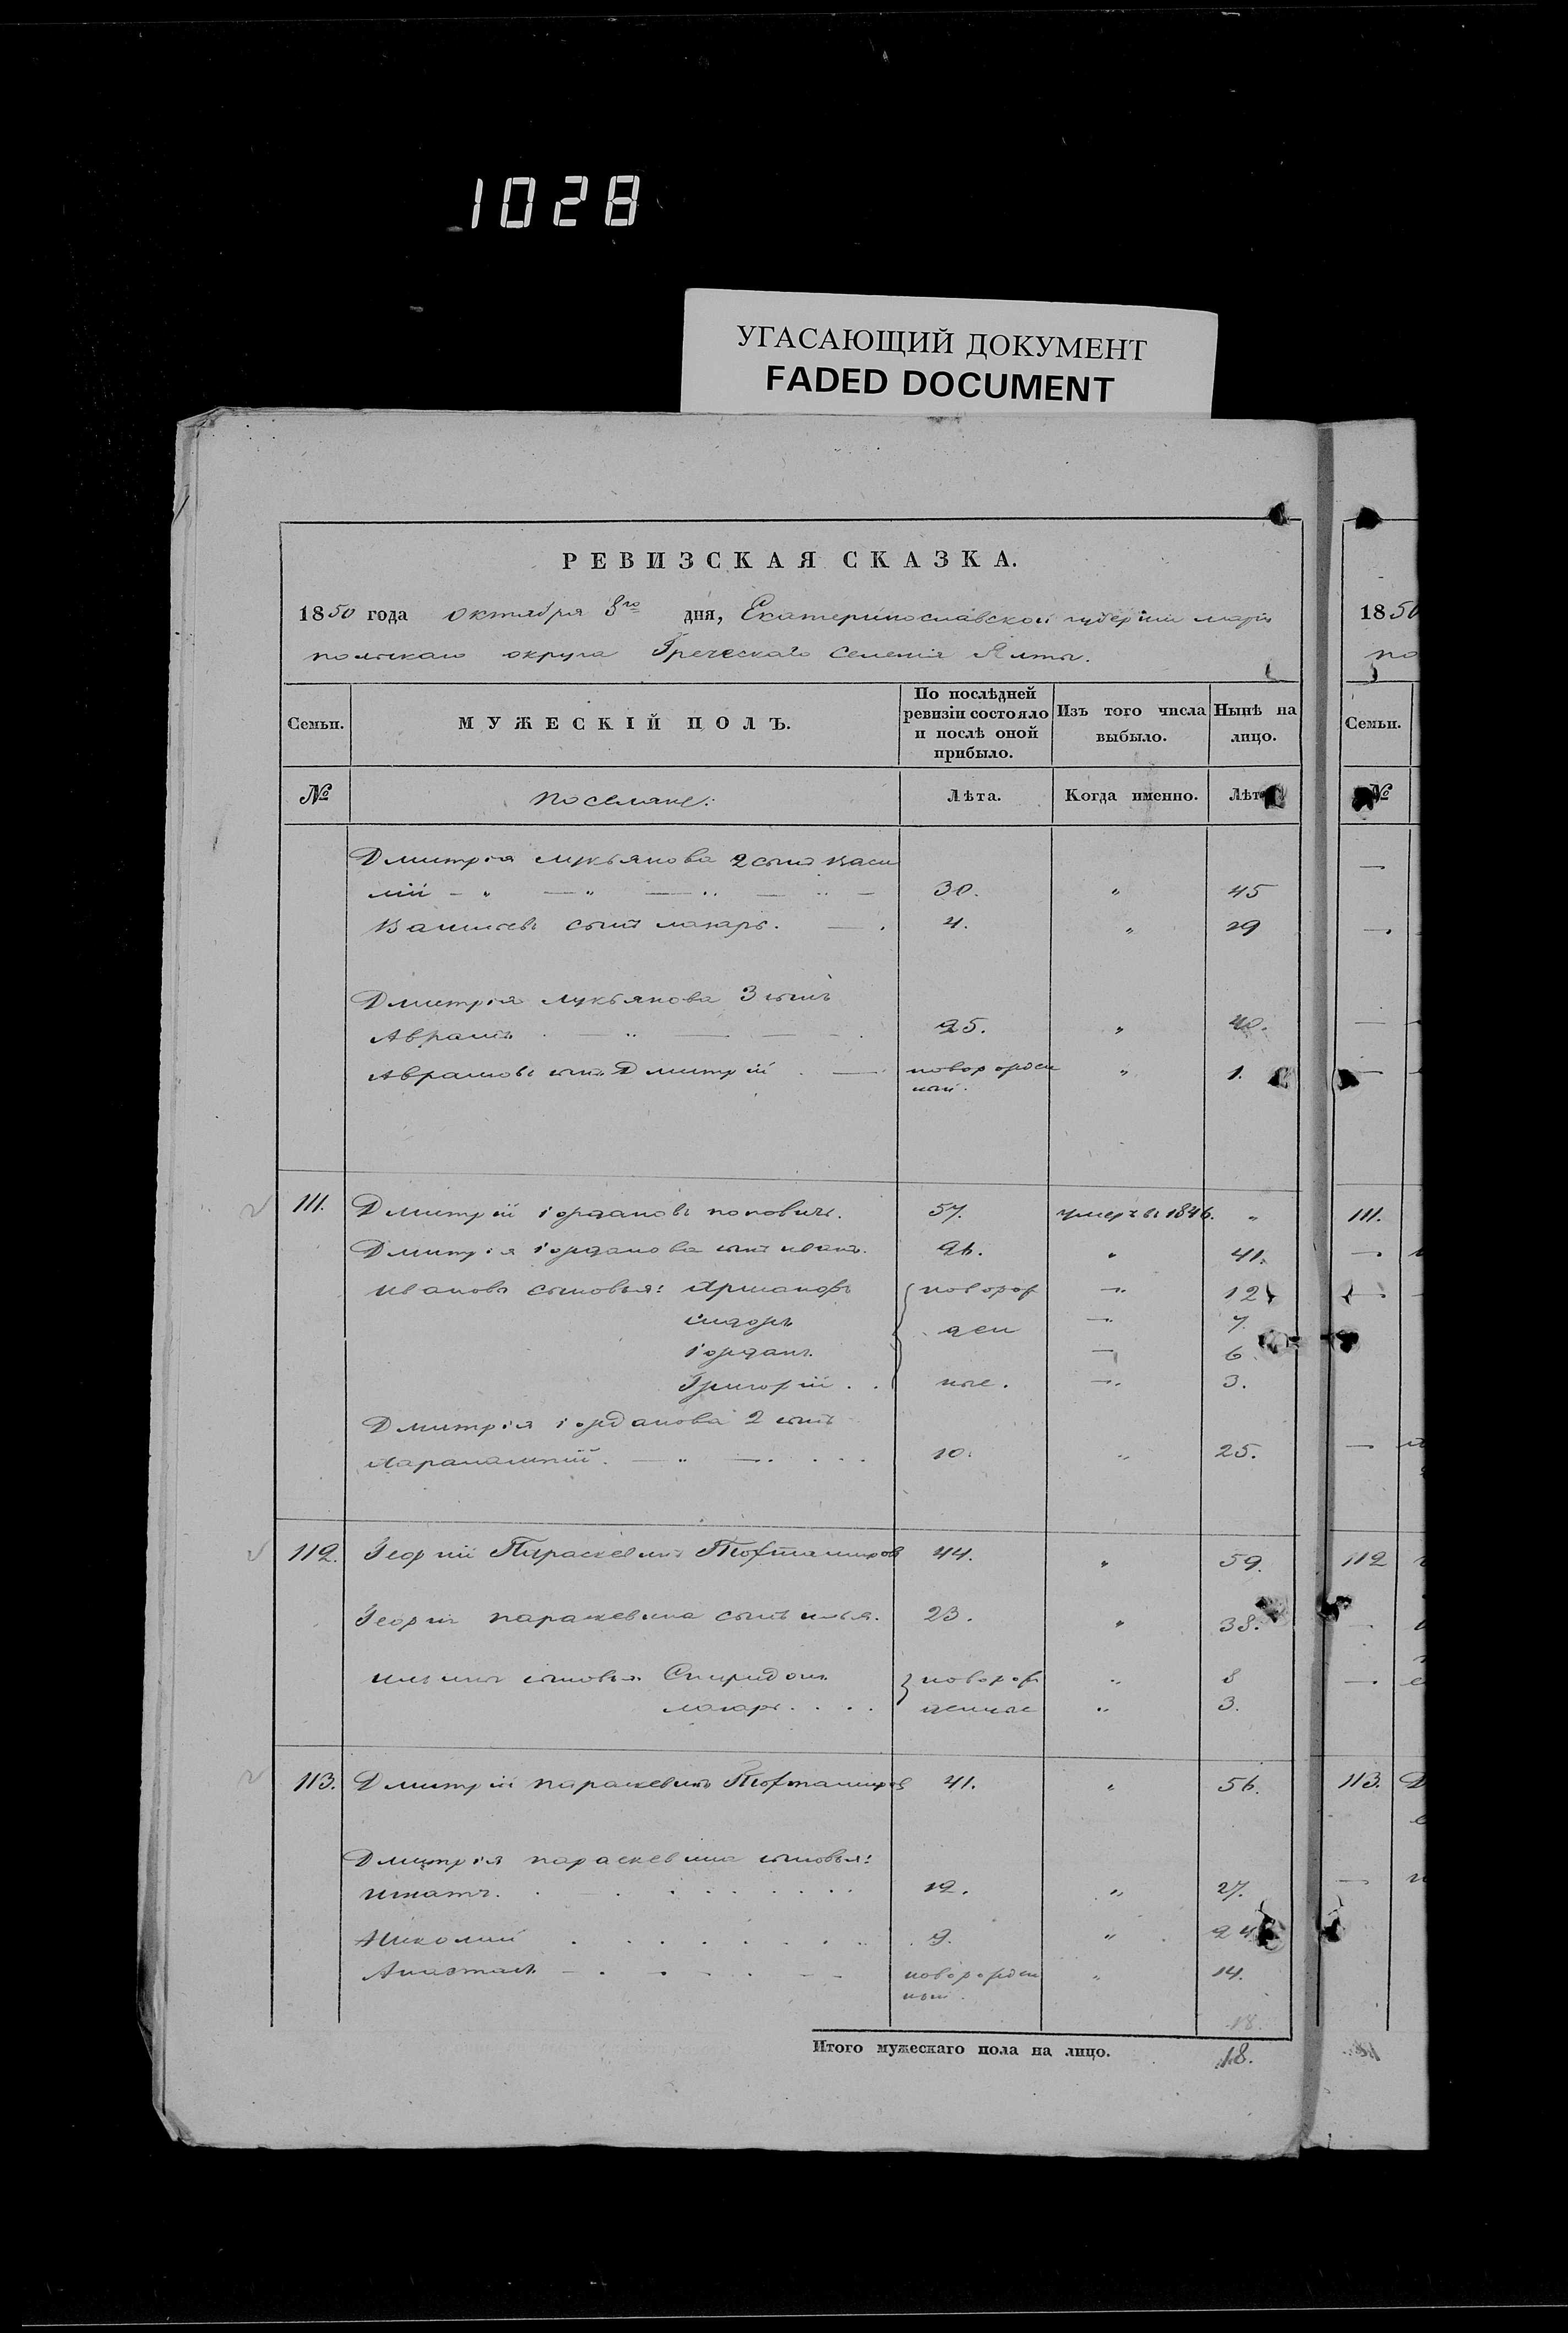 1028
УГАСАЮЩИЙ ДОКУМЕНТ
FADED DOCUMENT
РЕВИЗСКАЯ СКАЗКА.
1850 года октября 3го дня, Екатеринославской губерніи марiу
польскаго округа Греческаго Селенія Ялты.
Семьи. МУЖЕСКІЙ ПОЛЪ. По послѣдней ревизіи состояло и послѣ оной прибыло. Изъ того числа выбыло. Нынѣ на лицо.
№ поселяне: Лѣта. Когда именно. Лѣта
Дмитрія лукьянова 2 сынъ Васи
лій — " — " — 30. " 45
Васильевъ сынъ макаръ. — 4. " 19
Дмитрія лукьянова 3 сынъ
Аврамъ. — " — 25. " 40.
Аврамовъ сынъ Дмитрій. — новорожден " 1.
ный.
111. Дмитрій іордановъ поповичъ. 57. умеръ въ 1846. "
Дмитрія іорданова сынъ иванъ. 26. " 41.
ивановы сыновья: новорож " 12
ѳидоръ ден " 7.
іорданъ. — 6.
Григорій. . ные. " 3.
Дмитрія іорданова 2 сынъ
Харалампій. — " — . . . 10. " 25.
112. Георгій Параскевинъ 44. " 59.
Георгія параскевина сынъ илья. 23. " 38.
ильины сыновья Спиридонъ новорож " 8
макаръ. . . . денные " 3.
113. Дмитрій параскевинъ 41. " 56.
Дмитрія параскевина сыновья:
игнатъ. 12. " 27.
Николай 9. " 24.
Анастасъ — новорожден " 14.
ный.
18.
Итого мужескаго пола на лицо. 18.
1850
по
Семьи.
№
111.
112
113. Д